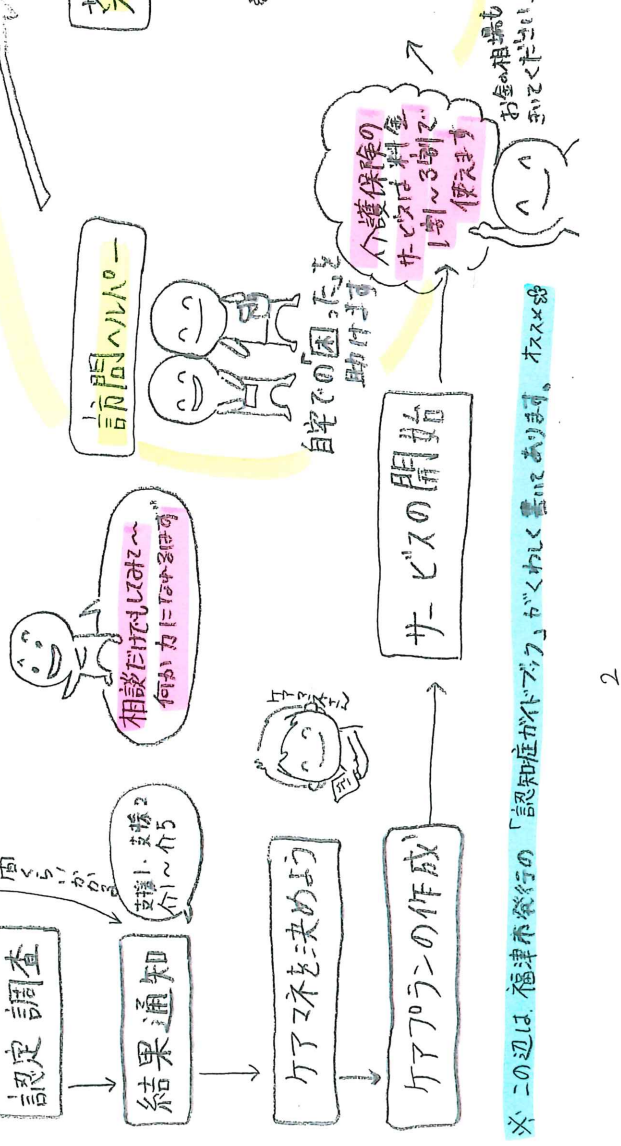 認定調査
間くらいかかる
結果通知
支援1・支援2
介1〜介5
ケアマネを決めよう
ケアマネさん
ケアプランの作成
サービスの開始
相談だけでもしてみて〜
何か力になれるはず
訪問ヘルパー
自宅での「困った」を
助けます
介護保険の
サービスは料金
1割〜3割で
使えます
お金の相場も
きいてください
※ この辺は 福津市発行の「認知症ガイドブック」がくわしく書いてあります。オススメ
2